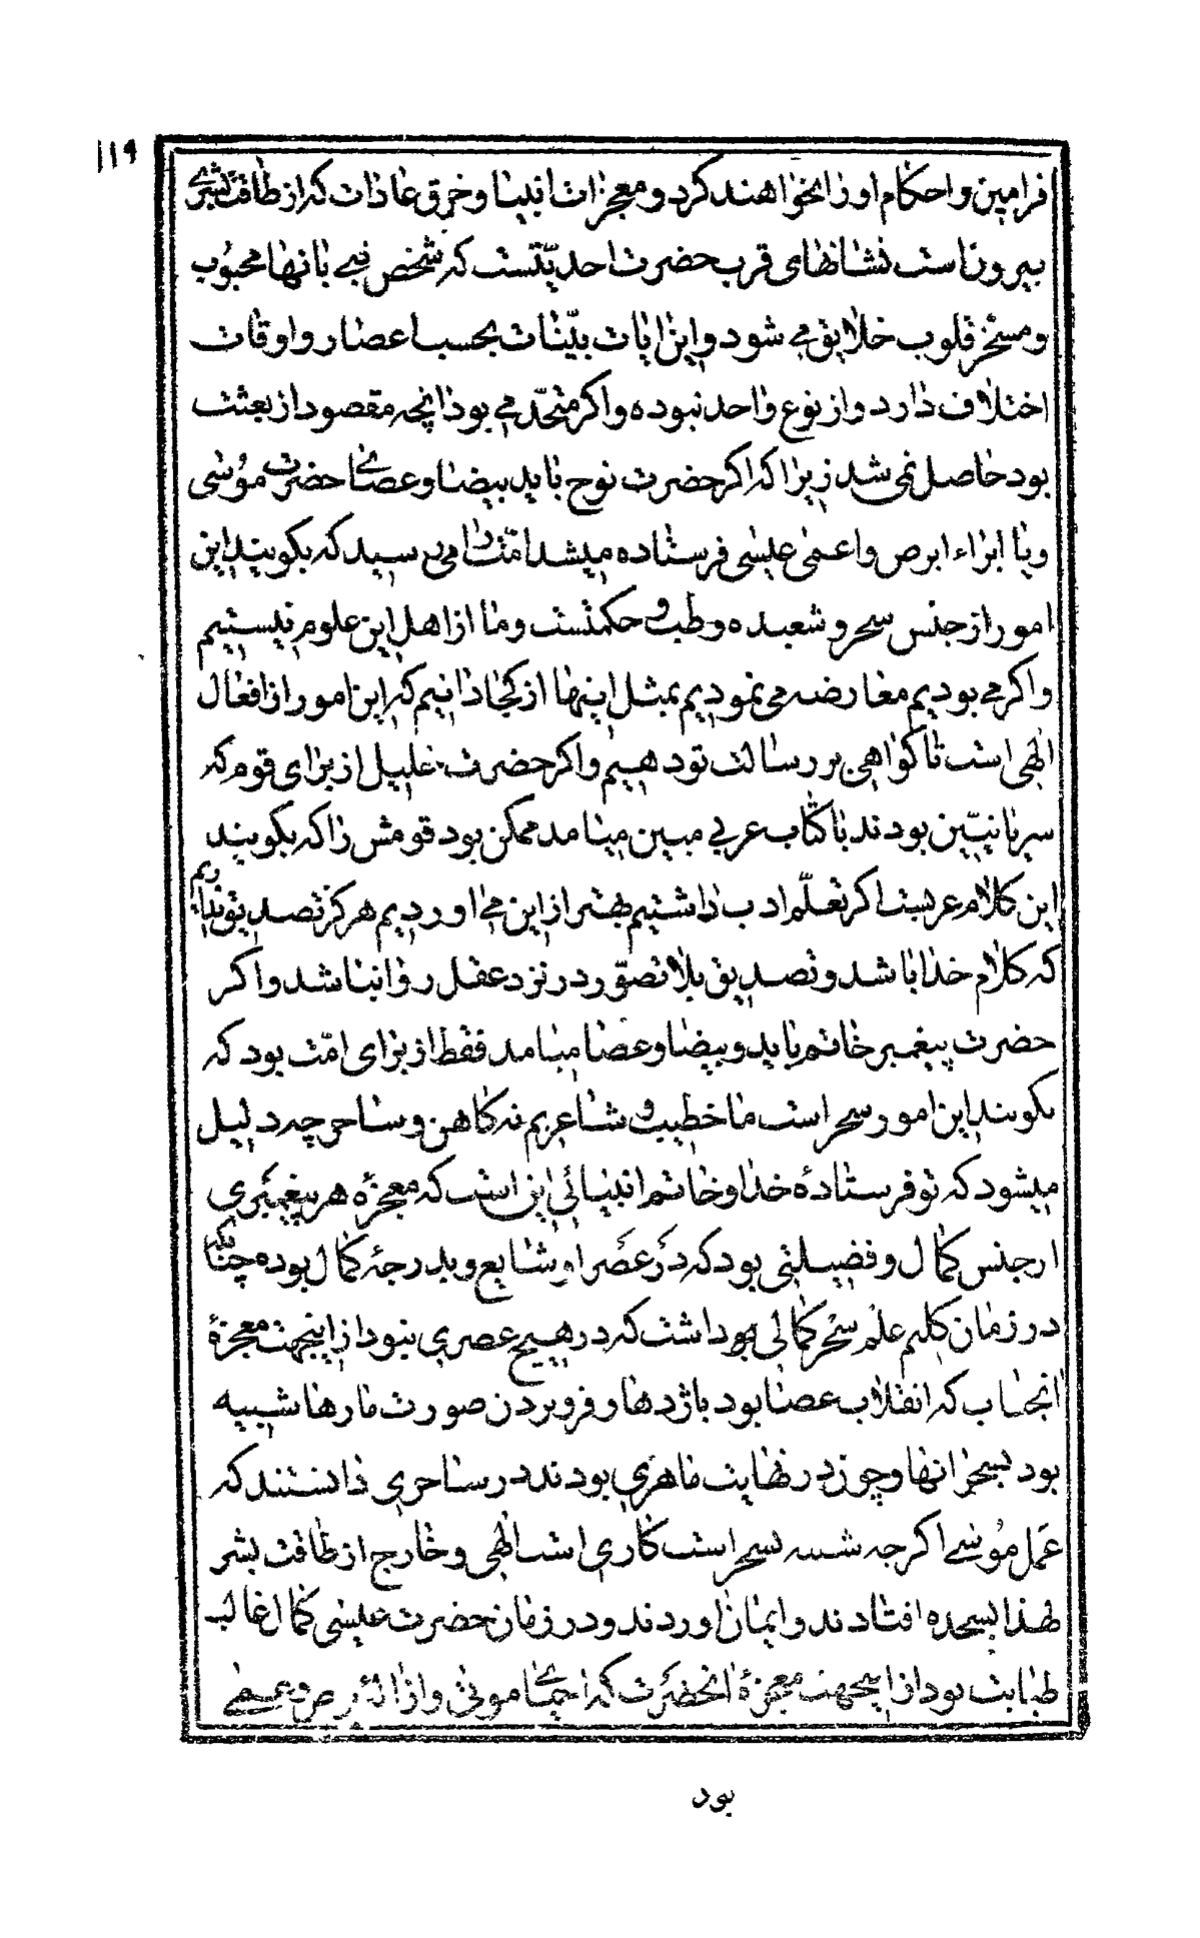 ۱۱۹
فرامین و احکام او را نخواهند کرد و معجزات انبیا و خرق عادات که از طاقت بشری
بیرون است نشانهای قرب حضرت احدیّتست که شخص نبی بانها محبوب
و مسخّر قلوب خلایق می شود و این ایات بیّنات بحسب اعصار و اوقات
اختلاف دارد و از نوع واحد نبوده و اکر متّحد می بود انچه مقصود از بعثت
بود حاصل نمی شد زیرا که اکر حضرت نوح با ید بیضا و عصای حضرت موسی
و یا ابراء ابرص و اعمی عیسی فرستاده میشد امّت را میرسید که بکویند این
امور از جنس سحر و شعبده و طب و حکمتست و ما از اهل این علوم نیستیم
و اکر می بودیم معارضه می نمودیم بمثل اینها از کجا دانیم که این امور از افعال
الهی است تا کواهی بر رسالت تو دهیم و اکر حضرت خلیل از برای قوم که
سریانیّین بودند با کتاب عربی مبین میامد ممکن بود قومش را که بکویند
این کلام عربیست اکر تعلّم ادب داشتیم بهتر از این می اوردیم هرکز تصدیق نداریم
که کلام خدا باشد و تصدیق بلا تصوّر در نزد عقل روا نباشد و اکر
حضرت پیغمبر خاتم با ید و بیضا و عصا میامد فقط از برای امّت بود که
بکویند این امور سحر است ما خطیب و شاعریم نه کاهن و ساحر چه دلیل
میشود که تو فرستادهٔ خدا و خاتم انبیائی این است که معجزهٔ هر پیغمبری
ازجنس کمال و فضیلتی بود که در عصر او شایع و بدرجهٔ کمال بوده چنانکه
در زمان کلیم علم سحر کمالی بود داشت که در هیچ عصری نبود از اینجهت معجزهٔ
انجناب که انقلاب عصا بود باژدها و فرو بردن صورت مارها شبیه
بود بسحر انها و چون در نهایت ماهری بودند در ساحری دانستند که
عمل موسی اکرچه شبیه بسحر است کاری است الهی و خارج از طاقت بشر
لهذا بسجده افتادند و ایمان اوردند و در زمان حضرت عیسی کمال غالب
طبابت بود از اینجهت معجزهٔ انحضرت که احیای موتی و ازالهٔ برص و عمی
بود